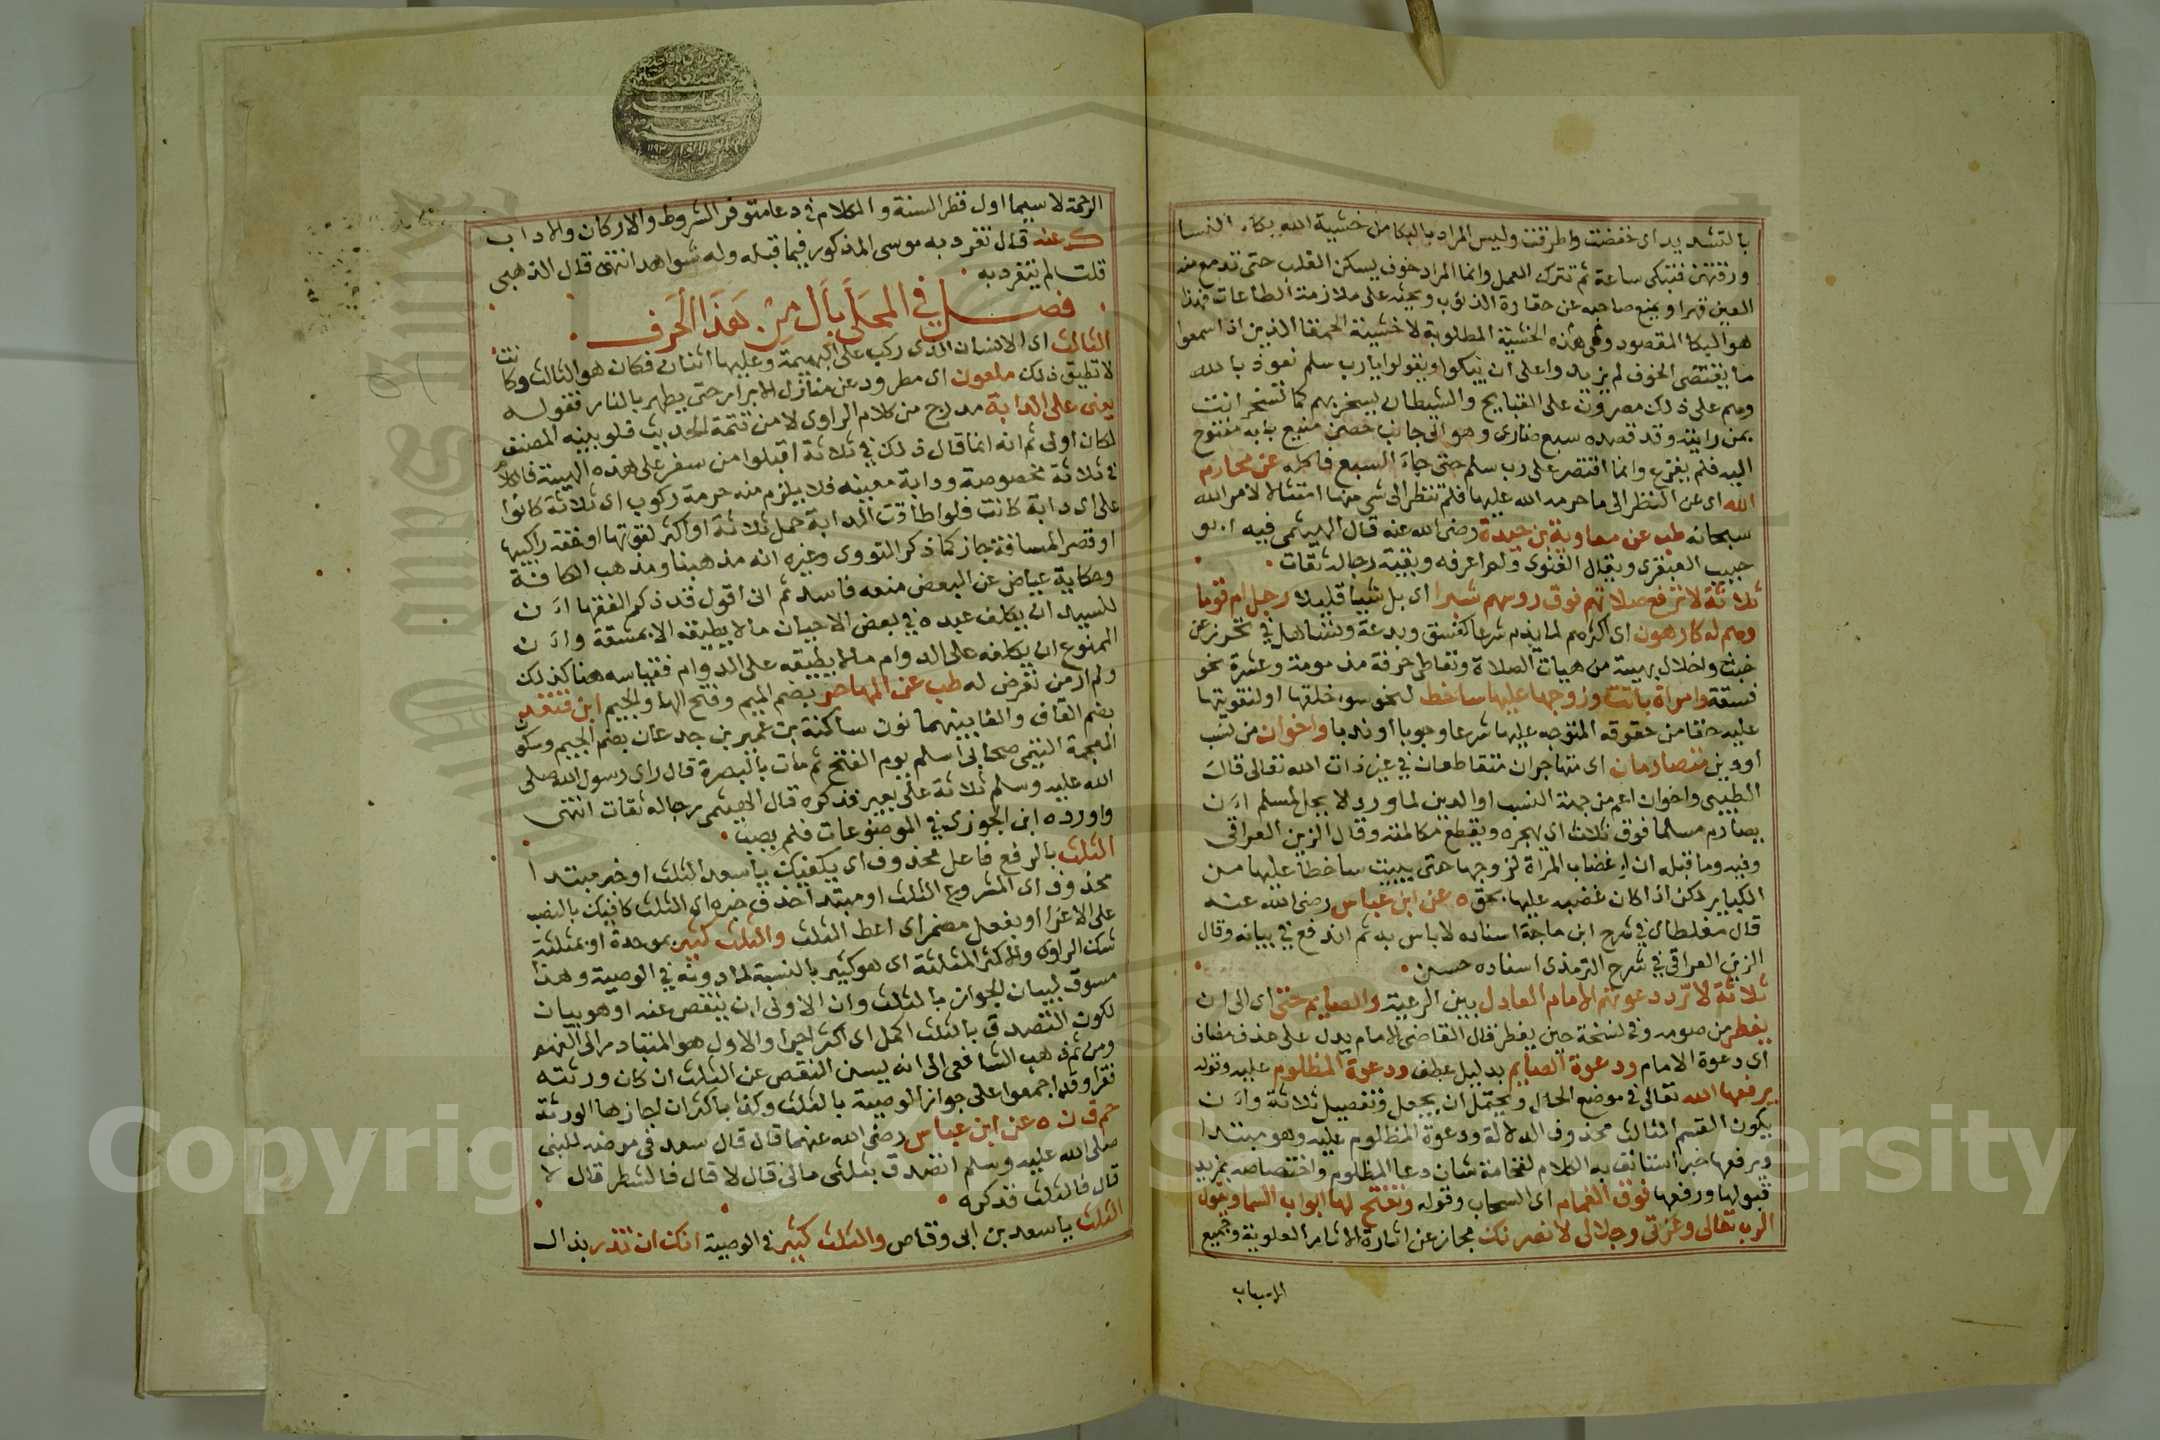 بالتشديد اى خفضت واطرقت وليس المراد بالبكا من خشية الله بكاء النسا
ورقتهن فتبكى ساعة ثم تترك العمل وانما المراد خوف يسكن القلب حتى تدمع منه
العين قهرا ويمنع صاحبه عن مقارفة الذنوب ويحثه على ملازمة الطاعات فهذا
هو البكا المقصود وهى هذه الخشية المطلوبة لا خشية الحمقا الذين اذا سمعوا
ما يقتضى الخوف لم يزيدوا على ان يبكوا ويقولوا يا رب سلم نعوذ بالله
وهم على ذلك مصرون على القبايح والشيطان يسخر بهم كما تسخر انت
بمن رايته وقد قصده سبع ضارى وهو الى جانب حصن منيع بابه مفتوح
اليه فلم يفزع وانما اقتصر على رب سلم حتى جاء السبع فاكله عن محارم
الله اى عن النظر الى ما حرمه الله عليها فلم تنظر الى شى منها امتثالا لامر الله
سبحانه طب عن معاوية بن حيدة رضى الله عنه قال الهيثمى فيه ابو
حبيب العنقرى ويقال الغنوى ولم اعرفه وبقية رجاله ثقات
ثلاثة لا ترفع صلاتهم فوق روسهم شبرا اى بل شيا قليلا رجل ام قوما
وهم له كارهون اى اكثرهم لما يذم شرعا كفسق وبدعة وتساهل فى تحرز عن
خبث واخلال بهيئة من هيات الصلاة وتعاطى حرفة مذمومة وعشرة نحو
فسقة وامراة باتت وزوجها عليها ساخط لنحو سوء خلقها او لتفويتها
عليه حقا من حقوقه المتوجه عليها شرعا وجوبا او ندبا واخوان من نسب
او دين متصارمان اى متهاجران متقاطعان فى غير ذات الله تعالى قال
الطيبى واخوان اعم من جهة النسب او الدين لما ورد لا يحل لمسلم ان
يصارم مسلما فوق ثلاث اى يهجره ويقطع مكالمته وقال الزين العراقى
وفيه وما قبله ان اغضاب المراة لزوجها حتى يبيت ساخطا عليها من
الكباير لكن اذا كان غضبه عليها بحق ه عن ابن عباس رضى الله عنه
قال مغلطاى فى شرح ابن ماجة اسناده لا باس به ثم اندفع فى بيانه وقال
الزين العراقى فى شرح الترمذى اسناده حسن
ثلاثة لا ترد دعوتهم الامام العادل بين الرعية والصايم حتى اى الى ان
يفطر من صومه وفى نسخة حين يفطر قال القاضى الامام يدل على حذف مضاف
اى دعوة الامام ودعوة الصايم بدليل عطف ودعوة المظلوم عليه وقوله
يرفعها الله تعالى فى موضع الحال ويحتمل ان يجعل تفصيل ثلاثة وان
يكون القسم الثالث محذوف الدلالة ودعوة المظلوم عليه وهو مبتدا
ويرفعها خبر استانف به الكلام لفخامة شان دعا المظلوم واختصاصه بمزيد
قبولها ورفعها فوق الغمام اى السحاب وقوله وتفتح لها ابواب السما ويقول
الرب تعالى وعزتى وجلالى لانصرنك مجاز عن اثارة الاثار العلوية وجميع
الاسباب
الرحمة لا سيما اول قطر السنة والكلام فى دعا متوفر الشروط والاركان والاداب
ك عنه قال تفرد به موسى المذكور فيما قبله وله شواهد انتهى قال الذهبى
قلت لم يتفرد به
فصل فى المحلى بال من هذا الحرف
الثالث اى الانسان الذى ركب على البهيمة وعليها اثنان فكان هو الثالث وكانت
لا تطيق ذلك ملعون اى مطرود عن منازل الابرار حتى يطهر بالنار فقوله
يعنى على الدابة مدرج من كلام الراوى لا من تتمة الحديث فلو بينه المصنف
لكان اولى ثم انه انما قال ذلك فى ثلاثة اقبلوا من سفر على هذه الهيئة
فى ثلاثة مخصوصة ودابة معينة فلا يلزم منه حرمة ركوب اى ثلاثة كانوا
على اى دابة كانت فلو اطاقت الدابة حمل ثلاثة او اكثر لقوتها او خفة راكبيها
او قصر المسافة جاز كما ذكر النووى وغيره انه مذهبنا ومذهب الكافة
وحكاية عياض عن البعض منعه فاسد ثم انى اقول قد ذكر الفقها ان
للسيد ان يكلف عبده فى بعض الاحيان ما لا يطيقه الا بمشقة وان
الممنوع ان يكلفه على الدوام ما لا يطيقه على الدوام فقياسه هنا كذلك
ولم ار من تعرض له طب عن المهاجر بضم الميم وفتح الها والجيم ابن قنفذ
بضم القاف والفا بينهما نون ساكنة بن عمير بن جدعان بضم الجيم وسكون
المعجمة التيمى صحابى اسلم يوم الفتح ثم مات بالبصرة قال راى رسول الله صلى
الله عليه وسلم ثلاثة على بعير فذكره قال الهيثمى رجاله ثقات انتهى
واورده ابن الجوزى فى الموضوعات فلم يصب
الثلث بالرفع فاعل محذوف اى يكفيك يا سعد الثلث او خبر مبتدا
محذوف اى المشروع الثلث او مبتدا حذف خبره اى الثلث كافيك بالنصب
على الاغرا او بفعل مضمر اى اعط الثلث والثلث كثير بموحدة او بمثلثة
شك الراوى والاكثر المثلثة اى هو كثير بالنسبة لما دونه فى الوصية وهذا
مسوق لبيان الجواز بالثلث وان الاولى ان ينقص عنه او هو بيان
لكون التصدق بالثلث اكمل اى اكثر اجرا والاول هو المتبادر الى الفهم
ومن ثم ذهب الشافعى الى انه يسن النقص عن الثلث ان كان ورثته
فقرا وقد اجمعوا على جواز الوصية بالثلث وكذا باكثر ان اجازها الورثة
حم ق ن ه عن ابن عباس رضى الله عنهما قال قال سعد فى مرضه للنبى
صلى الله عليه وسلم اتصدق بثلثى مالى قال لا قال فالشطر قال لا
قال فالثلث فذكره
الثلث يا سعد بن ابى وقاص والثلث كثير فى الوصية انك ان تذر بذال
Copyright © King Saud University